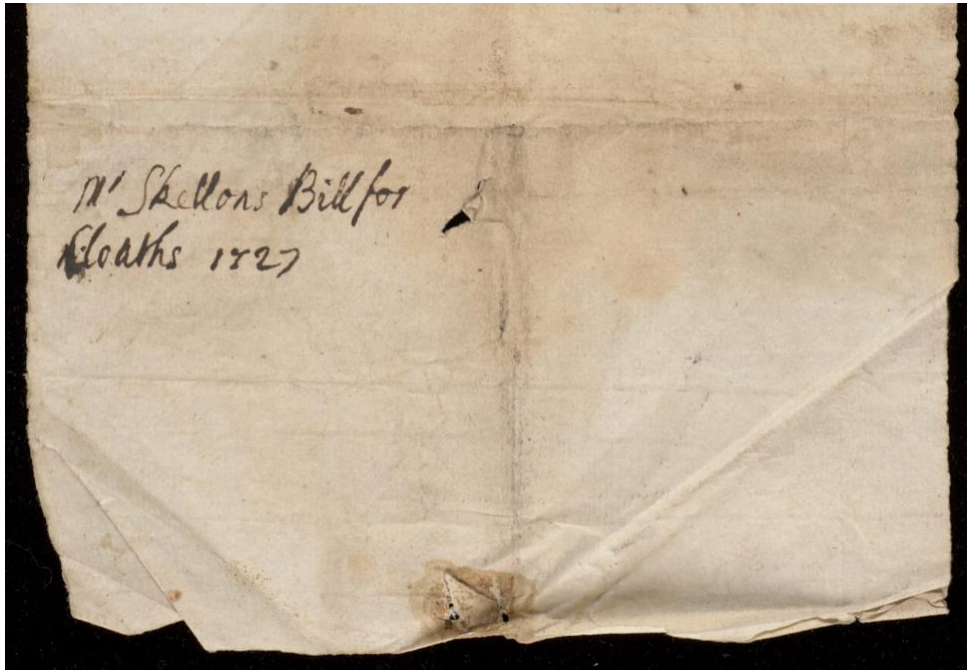 Mr Skellons Bill for
Cloaths 1727